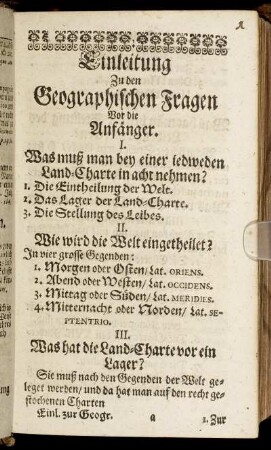 Einleitung
Zu den
Geographischen Fragen
Vor die
Anfänger.
I.
Was muß man bey einer iedweden
Land-Charte in acht nehmen?
1. Die Eintheilung der Welt.
2. Das Lager der Land-Charte.
3. Die Stellung des Leibes.
II.
Wie wird die Welt eingetheilet?
In vier grosse Gegenden:
1. Morgen oder Osten/ Lat. ORIENS.
2. Abend oder Westen/ Lat. OCCIDENS.
3. Mittag oder Süden/ Lat. MERIDIES.
4. Mitternacht oder Norden/ Lat. SE-
PTENTRIO.
III.
Was hat die Land-Charte vor ein
Lager?
Sie muß nach den Gegenden der Welt ge-
leget werden/ und da hat man auf den recht ge-
stochenen Charten
Einl. zur Geogr. a 1. Zur